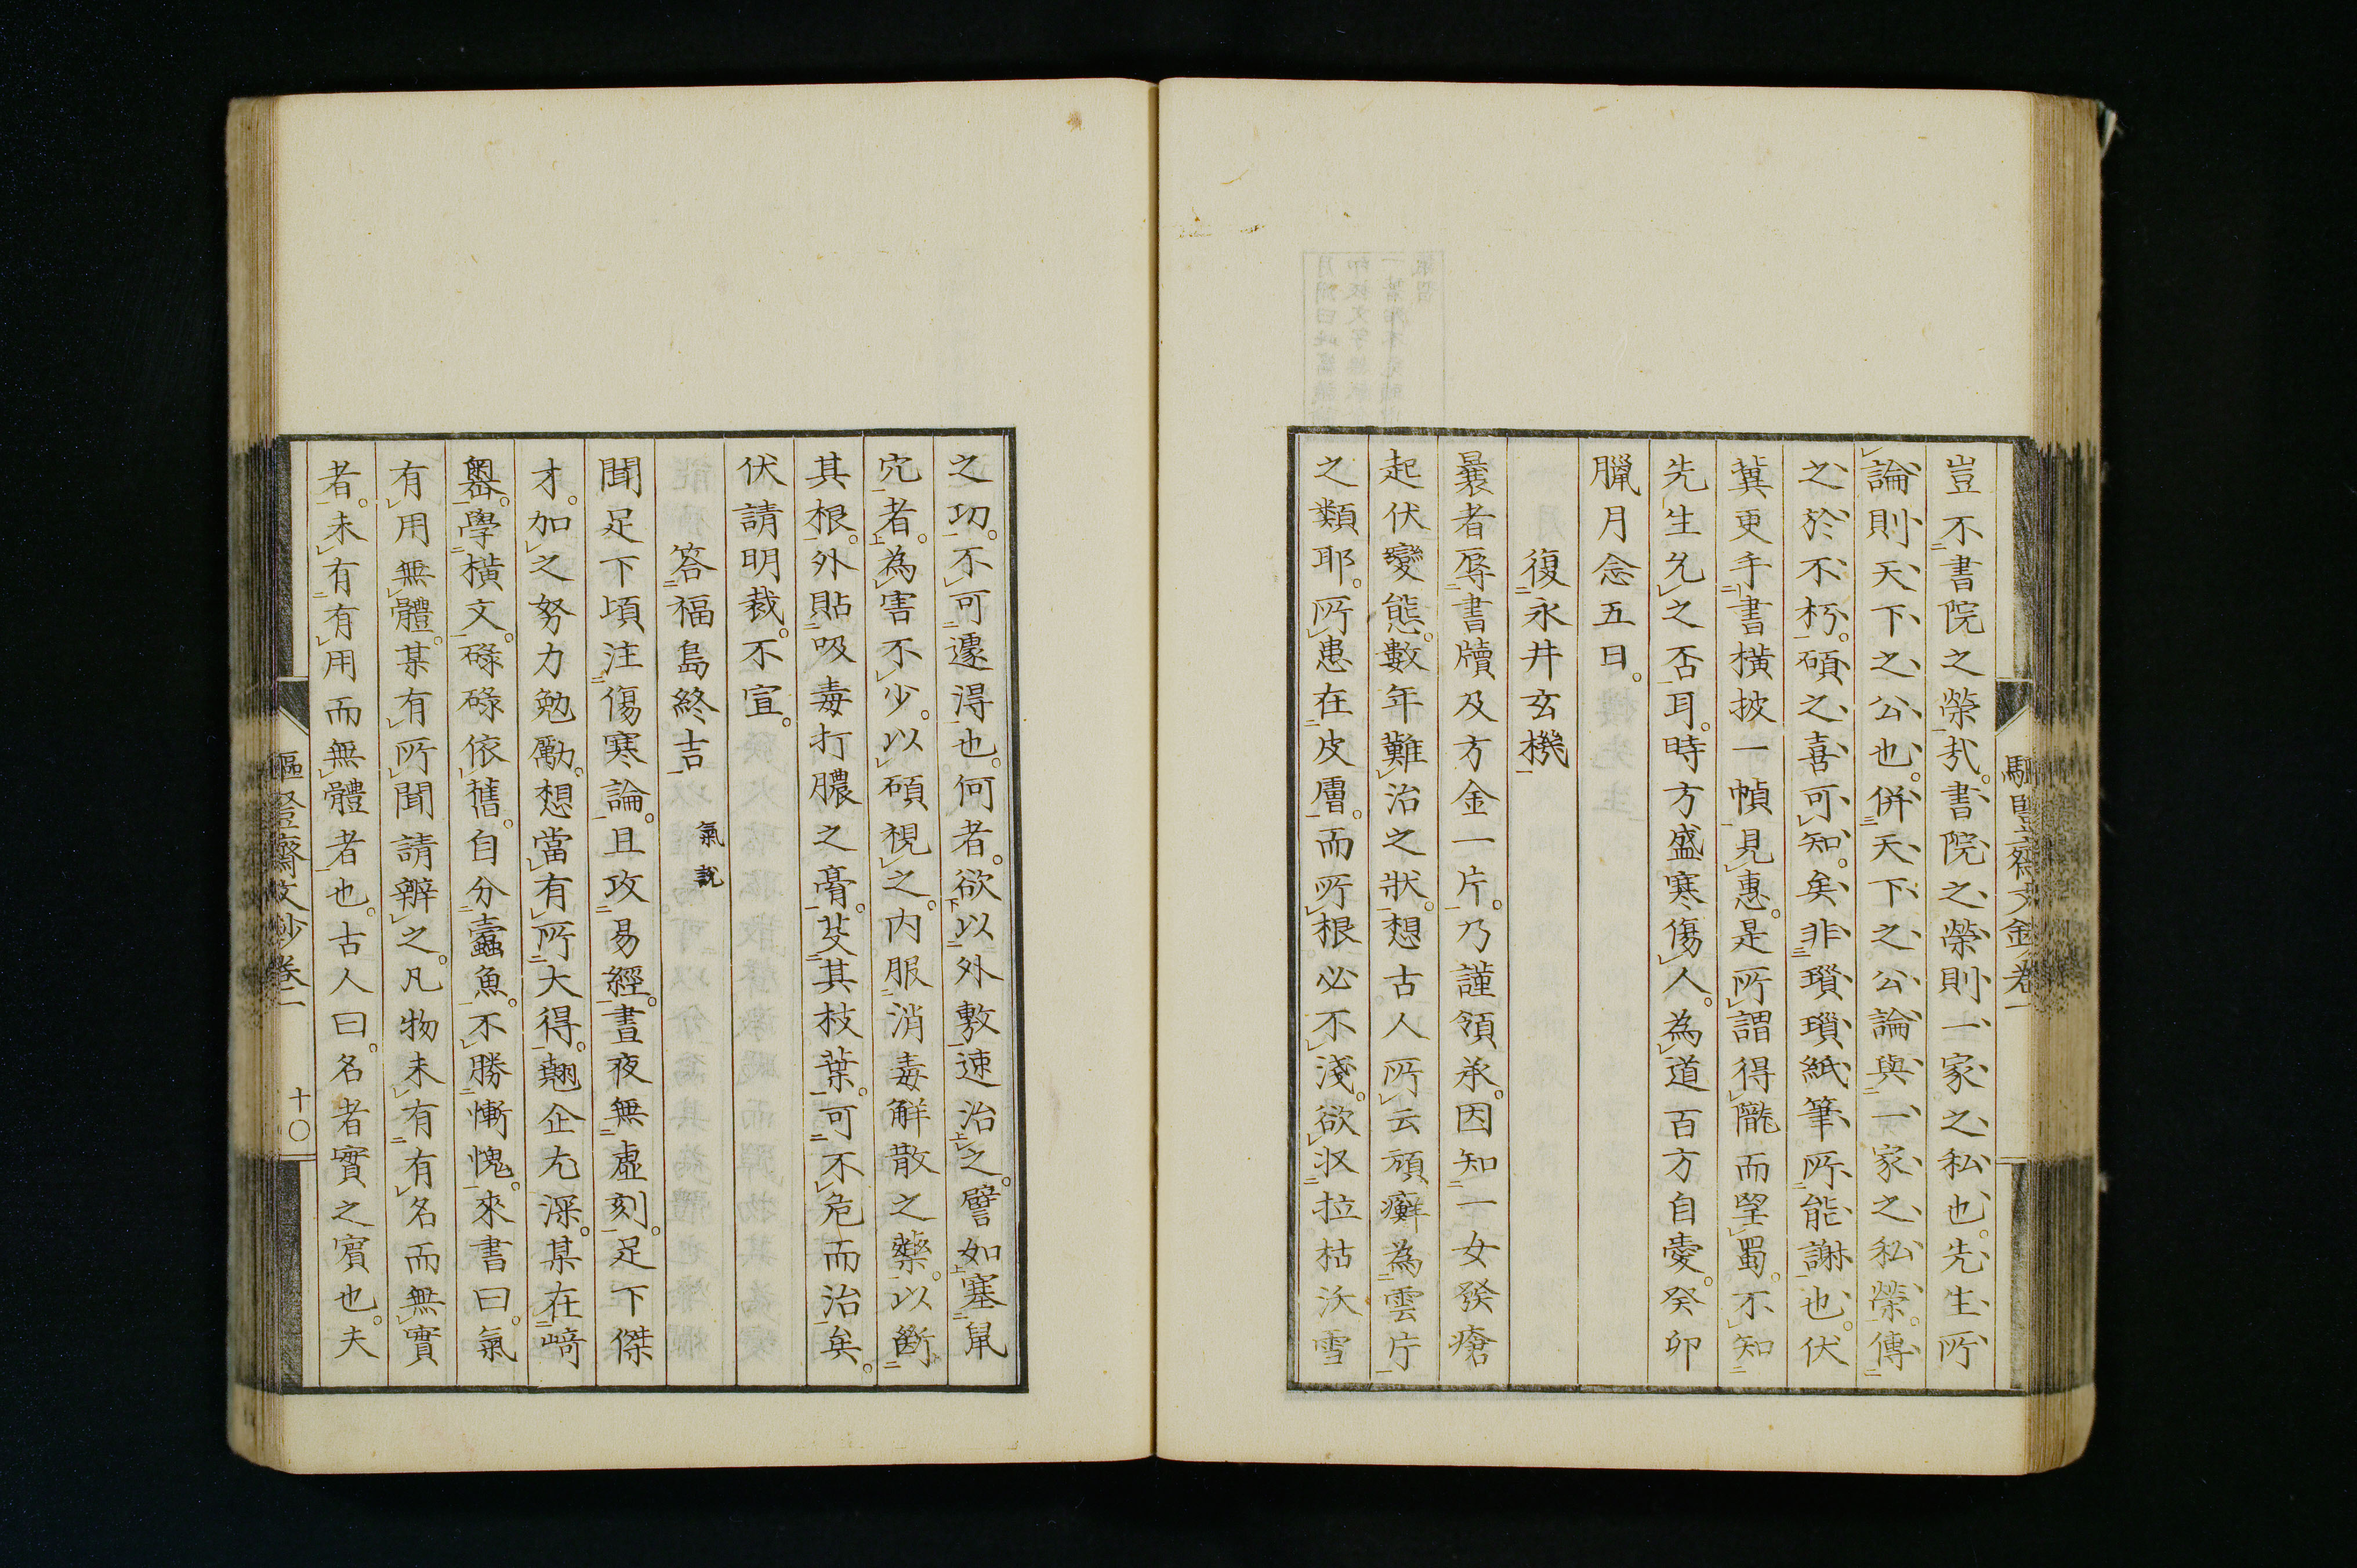 豈不書院之榮哉。書院之榮則一家之私也。先生所
論則天下之公也。併天下之公論與一家之私榮。傳
之於不朽。碩之喜可知。矣非瑣瑣紙筆所能謝也。伏
冀更手書横披一幀見惠。是所謂得隴而望蜀。不知
先生允之否耳。時方盛寒傷人。為道百方自愛。癸卯
臘月念五日。
復永井玄機
曩者辱書牘及方金一片。乃謹領承。因知一女發瘡
起伏變態。數年難治之狀。想古人所云頑癬為雲片
之類耶。所患在皮膚。而所根必不淺。欲収拉枯沃雪
之功。不可遽得也。何者。欲以外敷速治之。譬如塞鼠
穴者。為害不少。以碩視之。内服消毒解散之藥。以斷
其根。外貼吸毒打膿之膏。芟其枝葉。可不危而治矣。
伏請明裁。不宣。
答福島終吉 氣説
聞足下頃注傷寒論。且攻易經。晝夜無虚刻。足下傑
才。加之努力勉勵。想當有所大得。翹企尤深。某在﨑
嶴。學横文。碌碌依舊。自分蠹魚。不勝慚愧。來書曰。氣
有用無體。某有所聞請辨之。凡物未有有名而無實
者。未有有用而無體者也。古人曰。名者實之賓也。夫
駆豎斎文鈔卷一
駆豎齋文鈔卷一
十〇